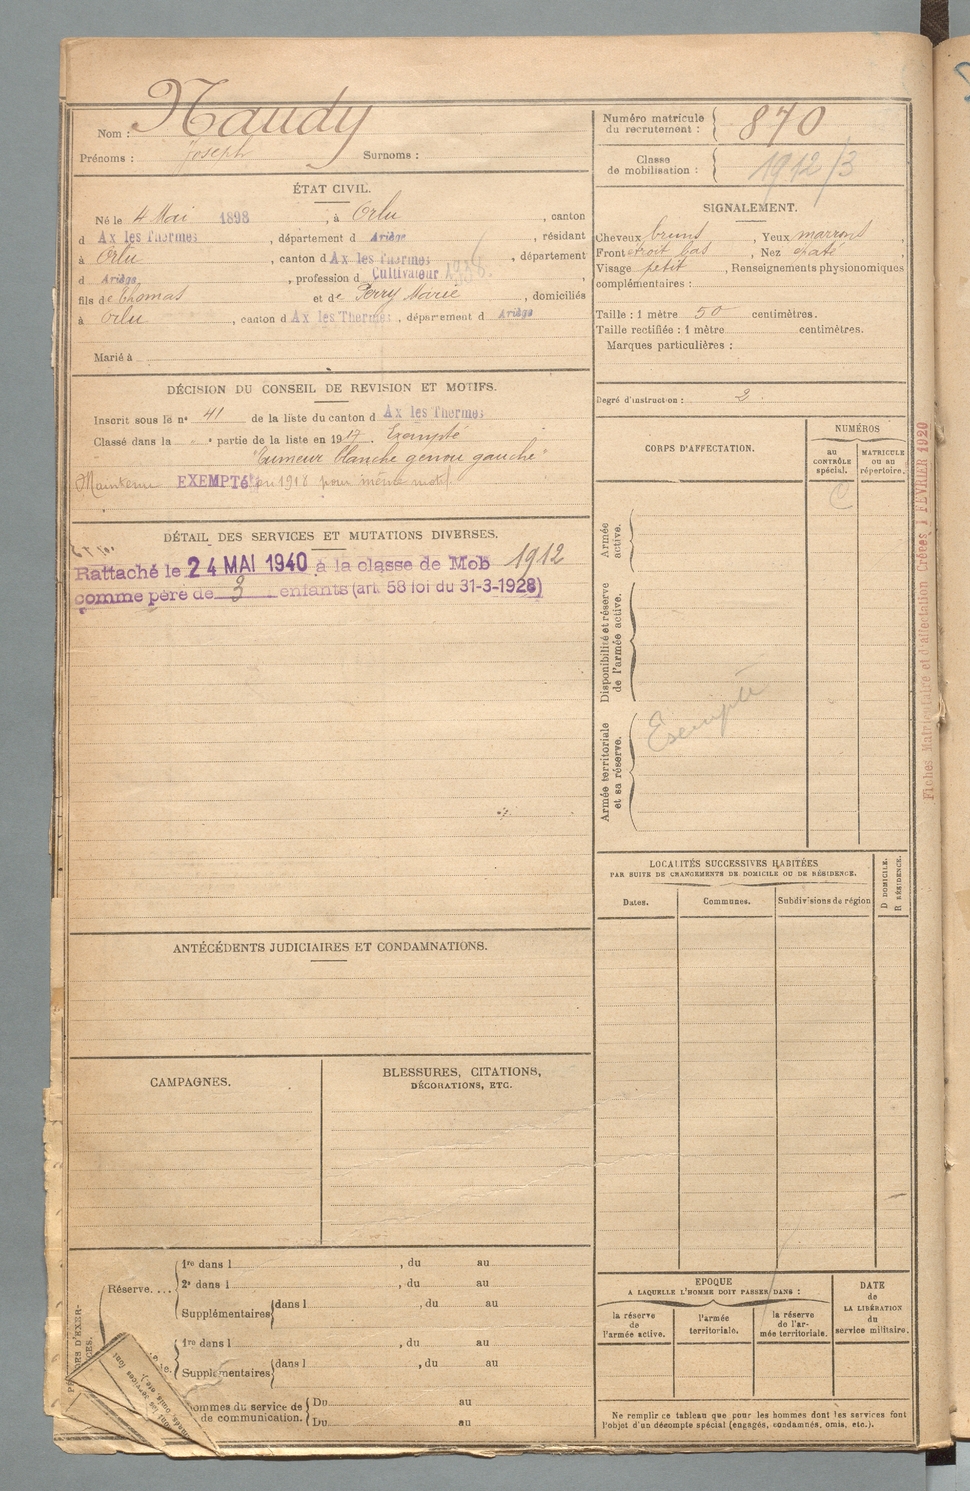 Nom : Naudy
Prénoms : Joseph Surnoms :
Numéro matricule du recrutement : 870
Classe de mobilisation : 1912/3
ÉTAT CIVIL.
Né le 4 Mai 1898, à Orlu, canton
d Ax les Thermes, département d Ariège, résidant
à Orlu, canton d Ax les Thermes, département
d Ariège, profession d Cultivateur
fils de Thomas et de Perry Marie, domiciliés
à Orlu, canton d Ax les Thermes, département d Ariège
Marié à
SIGNALEMENT.
Cheveux bruns, Yeux marrons,
Front étroit bas, Nez
Visage petit, Renseignements physionomiques
complémentaires :
Taille : 1 mètre 50 centimètres.
Taille rectifiée : 1 mètre centimètres.
Marques particulières :
Degré d'instruction : 3.
DÉCISION DU CONSEIL DE REVISION ET MOTIFS.
Inscrit sous le n° 41 de la liste du canton d Ax les Thermes
Classé dans la e partie de la liste en 1917. Exempté
"Tumeur blanche genou gauche"
Maintenu EXEMPTÉ en 1918 pour même motif
DÉTAIL DES SERVICES ET MUTATIONS DIVERSES.
Rattaché le 24 MAI 1940 à la classe de Mob 1912
comme père de 3 enfants (art. 58 loi du 31-3-1928)
CORPS D'AFFECTATION.
NUMÉROS
au CONTRÔLE spécial.
MATRICULE ou au répertoire.
Armée active.
Disponibilité et réserve de l'armée active.
Armée territoriale et sa réserve.
Exempté
Fiches Matriculaire et d'affectation Créées 1 FEVRIER 1920
LOCALITÉS SUCCESSIVES HABITÉES
PAR SUITE DE CHANGEMENTS DE DOMICILE OU DE RÉSIDENCE.
Dates.
Communes.
Subdivisions de région
D DOMICILE.
R RÉSIDENCE.
ANTÉCÉDENTS JUDICIAIRES ET CONDAMNATIONS.
CAMPAGNES.
BLESSURES, CITATIONS,
DÉCORATIONS, ETC.
Réserve....
1re dans l, du au
2e dans l, du au
Supplémentaires dans l, du au
1re dans l, du au
Supplémentaires dans l, du au
hommes du service de
de communication.
Du au
Du au
EPOQUE
A LAQUELLE L'HOMME DOIT PASSER DANS :
la réserve de l'armée active.
l'armée territoriale.
la réserve de l'armée territoriale.
DATE
de
LA LIBÉRATION
du
service militaire.
Ne remplir ce tableau que pour les hommes dont les services font
l'objet d'un décompte spécial (engagés, condamnés, omis, etc.).